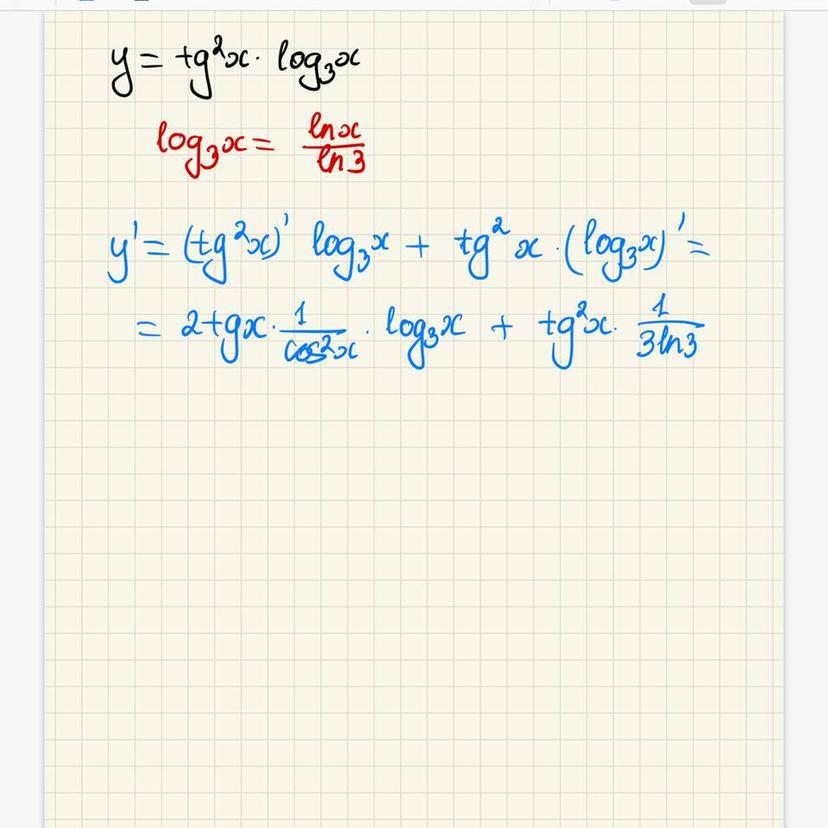 y = tg²x · log₃x
log₃x = lnx/ln3
y' = (tg²x)' log₃x + tg²x · (log₃x)' =
= 2tgx · 1/cos²x · log₃x + tg²x · 1/3ln3